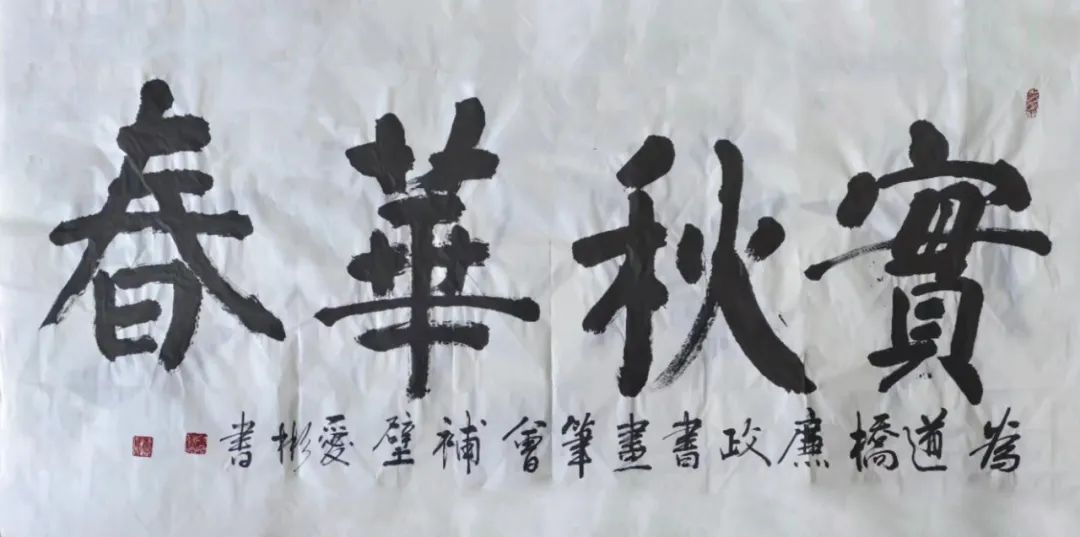 春華秋實
為道橋廉政書畫筆會補壁愛彬書